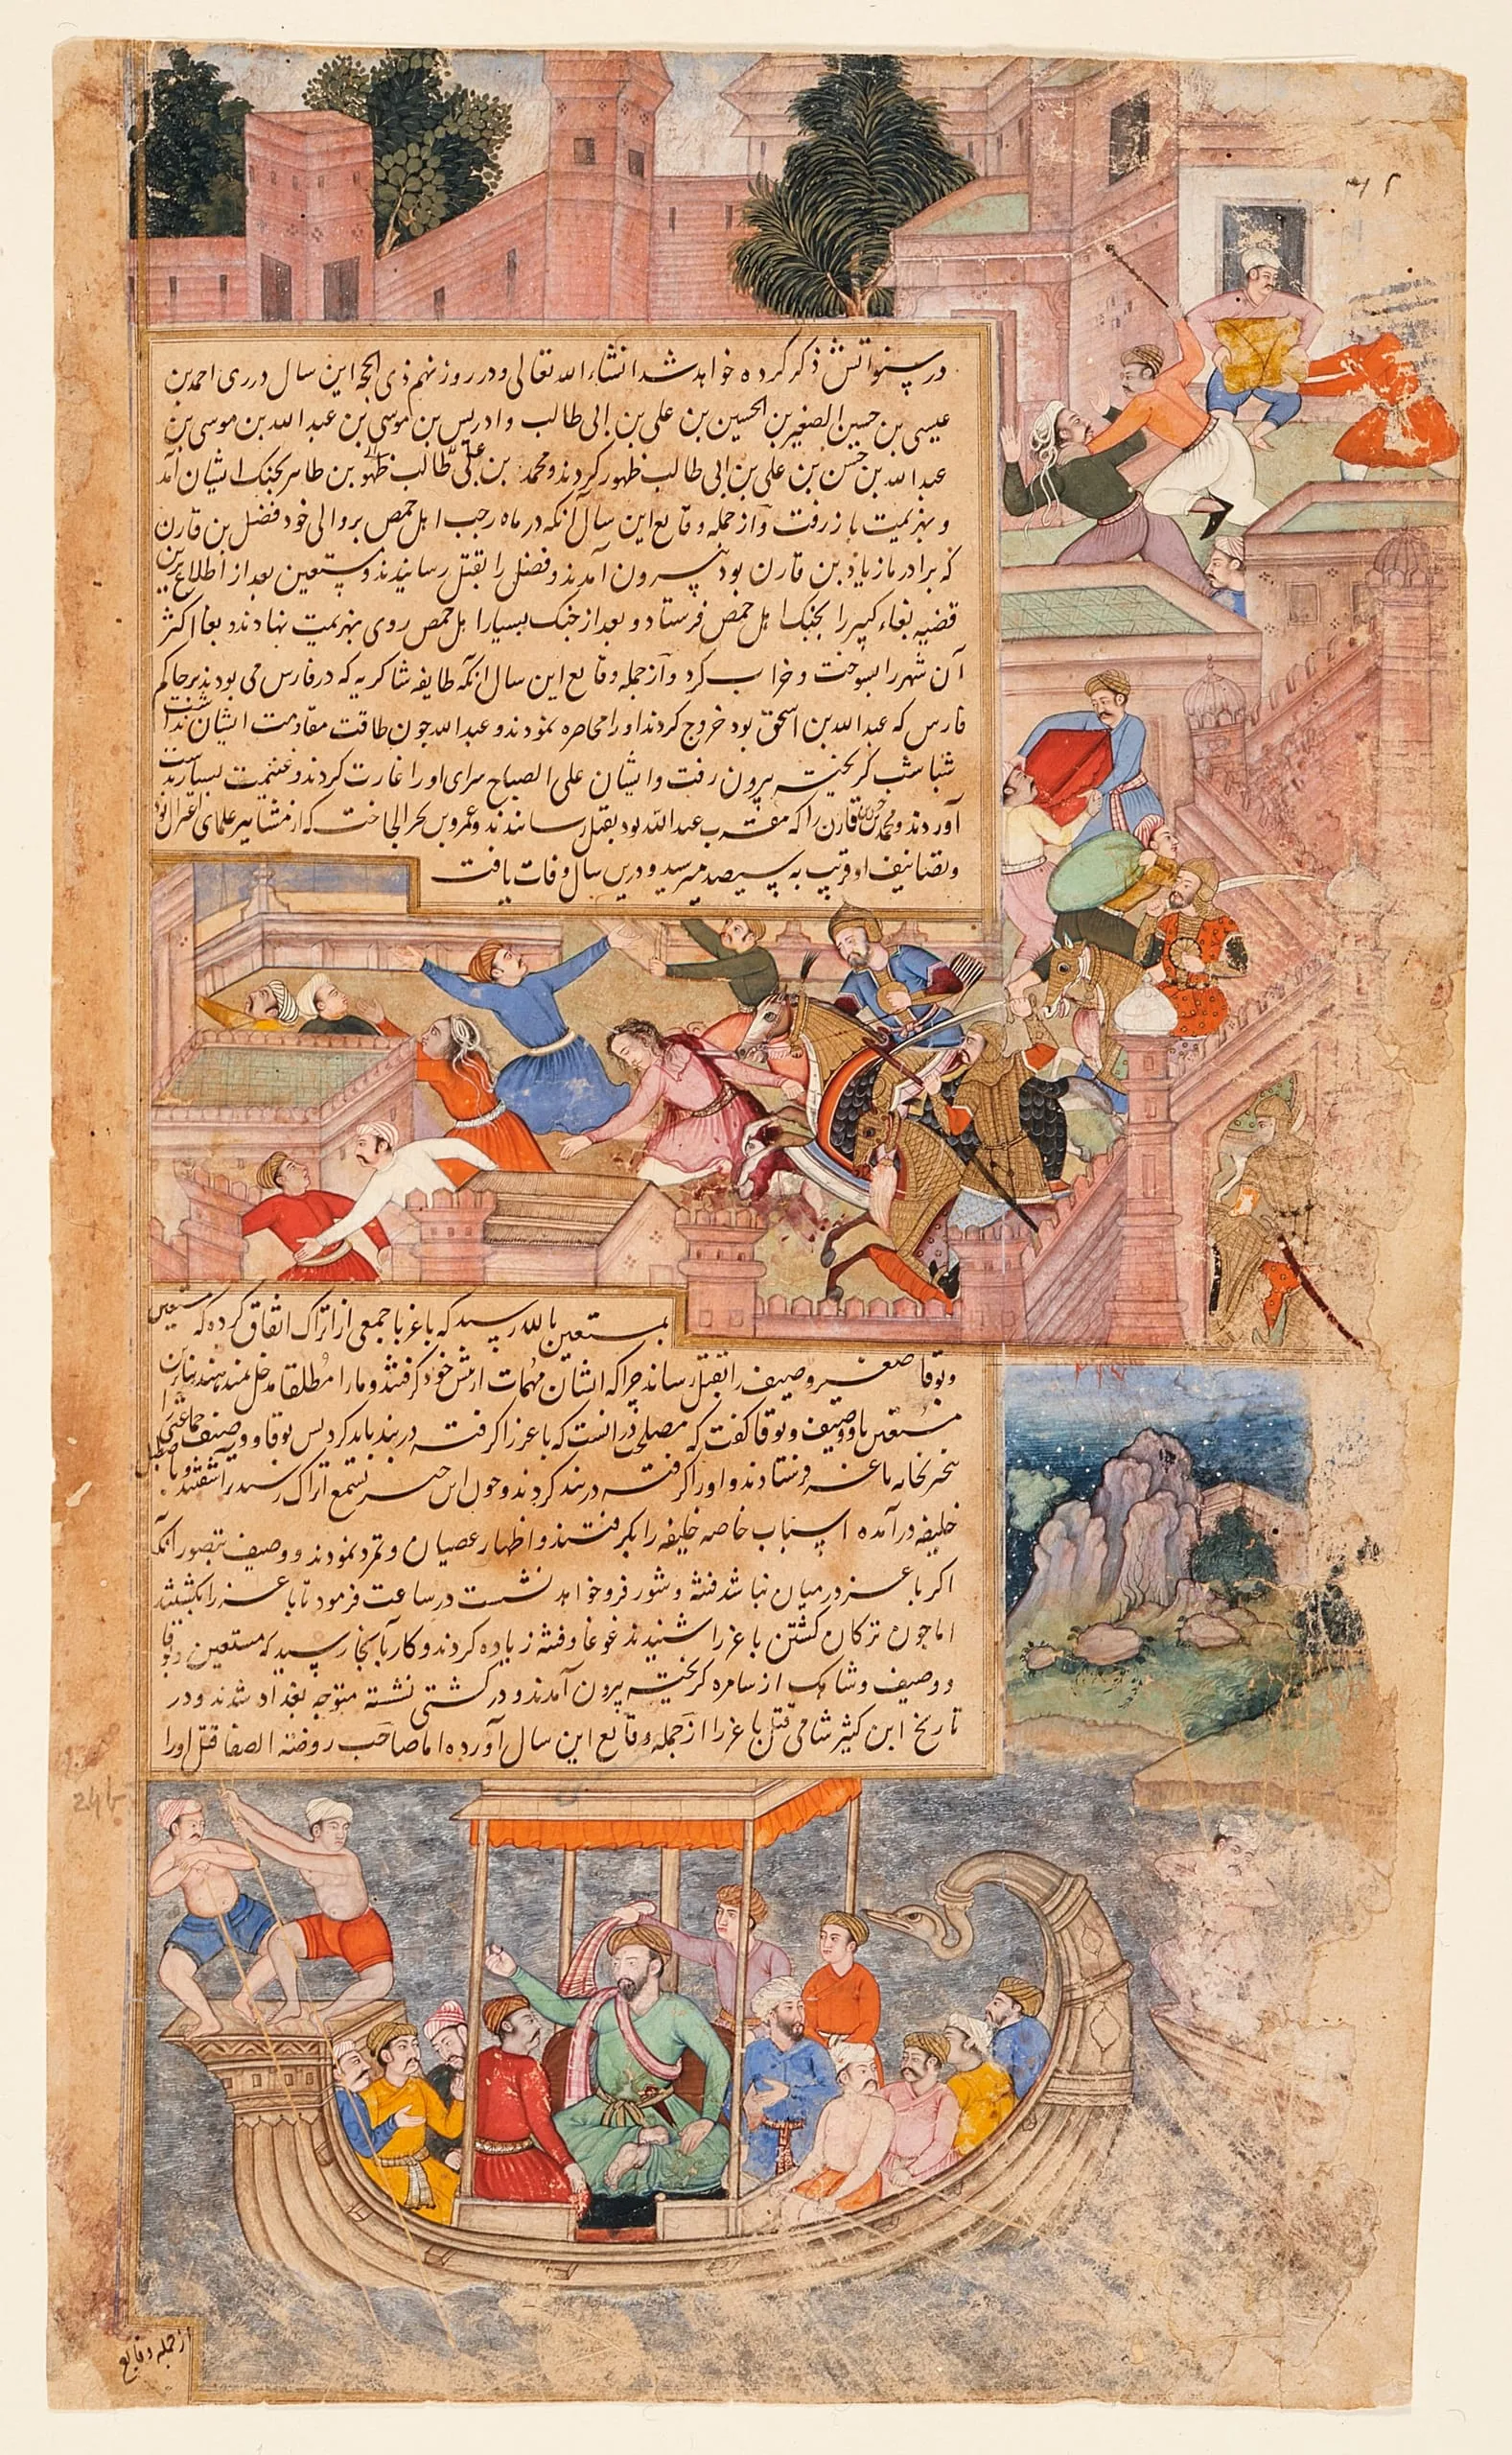 ۴۶
در سنواتش ذکر کرده خواهد شد انشاء الله تعالی و در روز نهم ذی الحجه این سال در ری احمد بن
عیسی بن حسین الصغیر بن الحسین بن علی بن ابی طالب و ادریس بن موسی بن عبد الله بن موسی بن
عبد الله بن حسن بن علی بن ابی طالب ظهور کردند و محمد بن علی بن طاهر بجنک ایشان آمد
و بهزیمت باز رفت و از جمله وقایع این سال آنکه در ماه رجب اهل حمص بر والی خود فضل بن قارن
که برادر مازیار بن قارن بود بیرون آمدند و فضل را بقتل رسانیدند و مستعین بعد از اطلاع برین
قضیه بغاء کبیر را بجنک اهل حمص فرستاد و بعد از جنک بسیار اهل حمص روی بهزیمت نهادند و بغا اکثر
آن شهر را بسوخت و خراب کرد و از جمله وقایع این سال آنکه طایفه شاکریه که در فارس می بودند بر حاکم
فارس که عبد الله بن اسحق بود خروج کردند و او را محاصره نمودند و عبد الله چون طاقت مقاومت ایشان نداشت
شباشب کریخته بیرون رفت و ایشان علی الصباح سرای او را غارت کردند و غنیمت بسیار بدست
آوردند و محمد بن حسن بن قارن را که مقرب عبد الله بود بقتل رسانیدند و عمرو بن بحر الجاحظ که از مشاهیر علمای اعتزال بود
و تصانیف او قریب به سیصد میرسید و درین سال وفات یافت
بمستعین بالله رسید که باغر با جمعی از اتراک اتفاق کرده که مستعین
و بوقا صغیر و وصیف را بقتل رساند چرا که ایشان مهمات از پیش خود کرفتند و ما را مطلقا مدخل نمیدهند بنابرین
مستعین با وصیف و بوقا کفت که مصلحت در آنست که باغر را کرفته در بند باید کرد پس بوقا و وصیف جماعتی را
بخانه باغر فرستادند و او را کرفته در بند کردند و چون این خبر بسمع اتراک رسید برآشفتند و باصطبل
خلیفه درآمده اسباب خاصه خلیفه را بکرفتند و اظهار عصیان و تمرد نمودند و وصیف بتصور آنکه
اکر باغر در میان نباشد فتنه و شور فرو خواهد نشست در ساعت فرمود تا باغر را بکشتند
اما چون ترکان کشتن باغر را شنیدند غوغا و فتنه زیاده کردند و کار بآنجا رسید که مستعین و بوقا
و وصیف و شاهک از سامره کریخته بیرون آمدند و در کشتی نشسته متوجه بغداد شدند و در
تاریخ ابن کثیر شامی قتل باغر را از جمله وقایع این سال آورده اما صاحب روضة الصفا قتل او را
246
از جمله وقایع